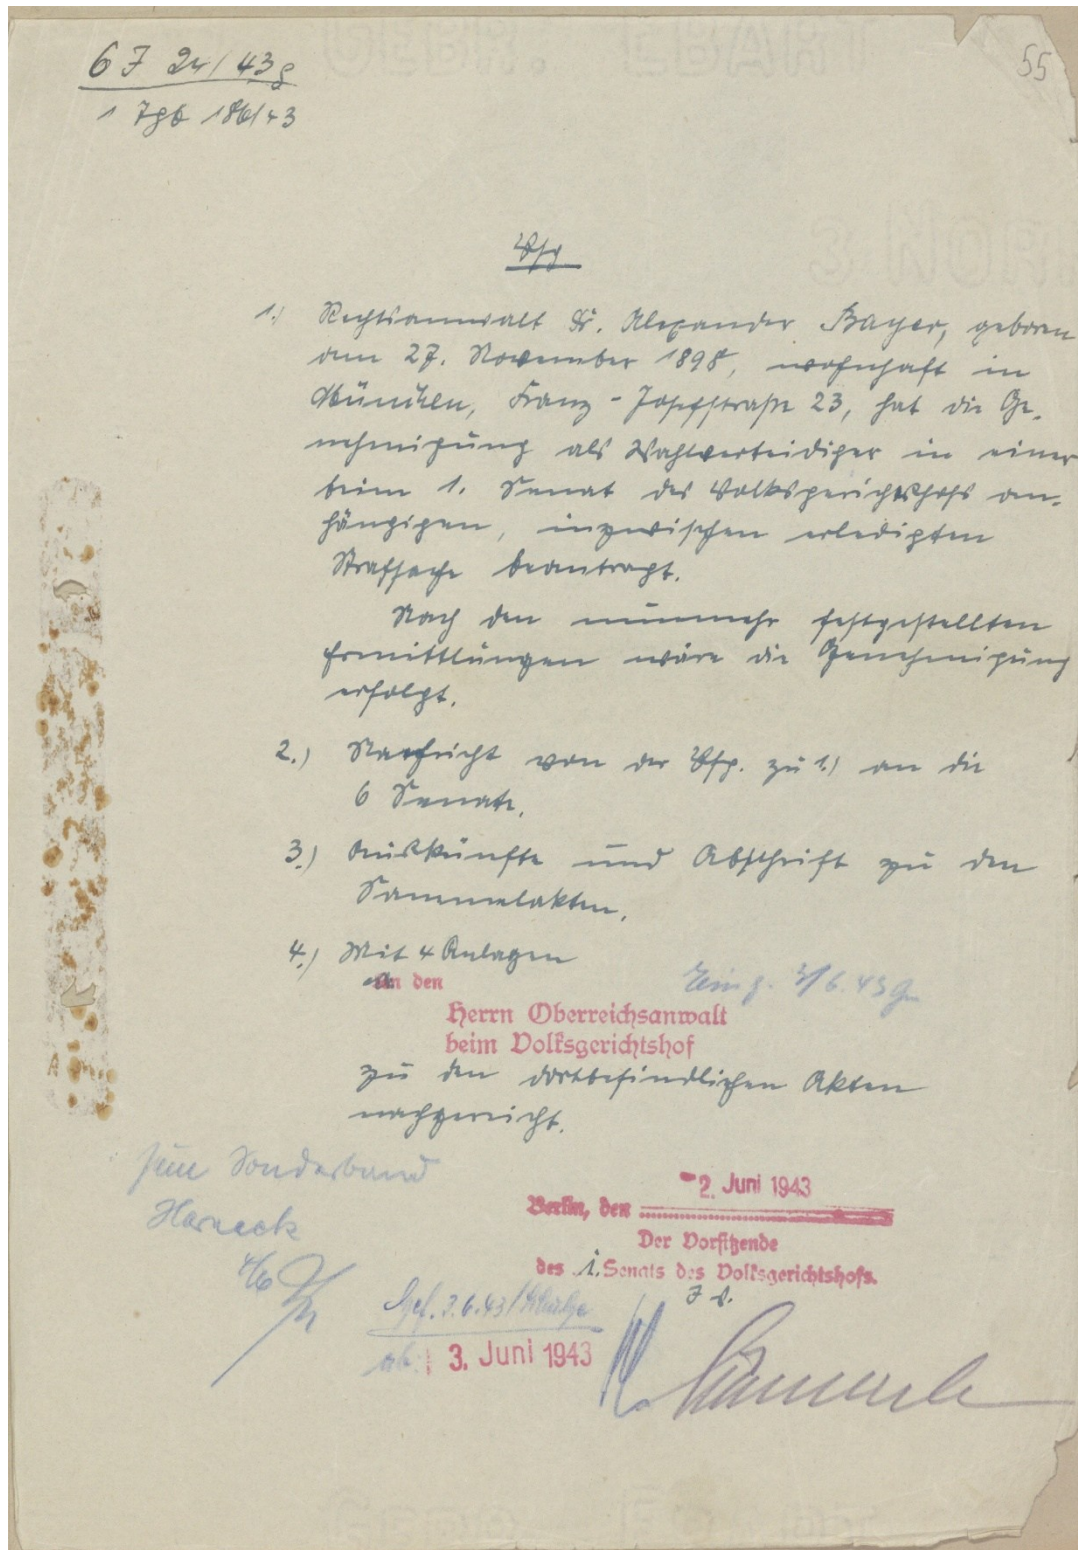 6 J 24/43g
55
1 Tgb 186/43
Vfg
1.) Rechtsanwalt Dr. Alexander Bayer, geboren
am 27. November 1898, wohnhaft in
München, Franz-Josefstraße 23, hat die Ge-
nehmigung als Wahlverteidiger in einer
beim 1. Senat des Volksgerichtshofs an-
hängigen, inzwischen erledigten
Strafsache beantragt.
Nach den nunmehr festgestellten
Ermittlungen wäre die Genehmigung
erfolgt.
2.) Nachricht von der Vfg. zu 1.) an die
6 Senate.
3.) Auskünfte und Abschrift zu den
Sammelakten.
4.) Mit 4 Anlagen
an den
Eing. 3/6. 43
Herrn Oberreichsanwalt
beim Volksgerichtshof
zu den dortbefindlichen Akten
nachgereicht.
zum Sonderband
Harneck
4/6
-2. Juni 1943
Berlin, den
Der Vorsitzende
des 1. Senats des Volksgerichtshofs.
J V.
Gef. 3.6.43
ab: 3. Juni 1943